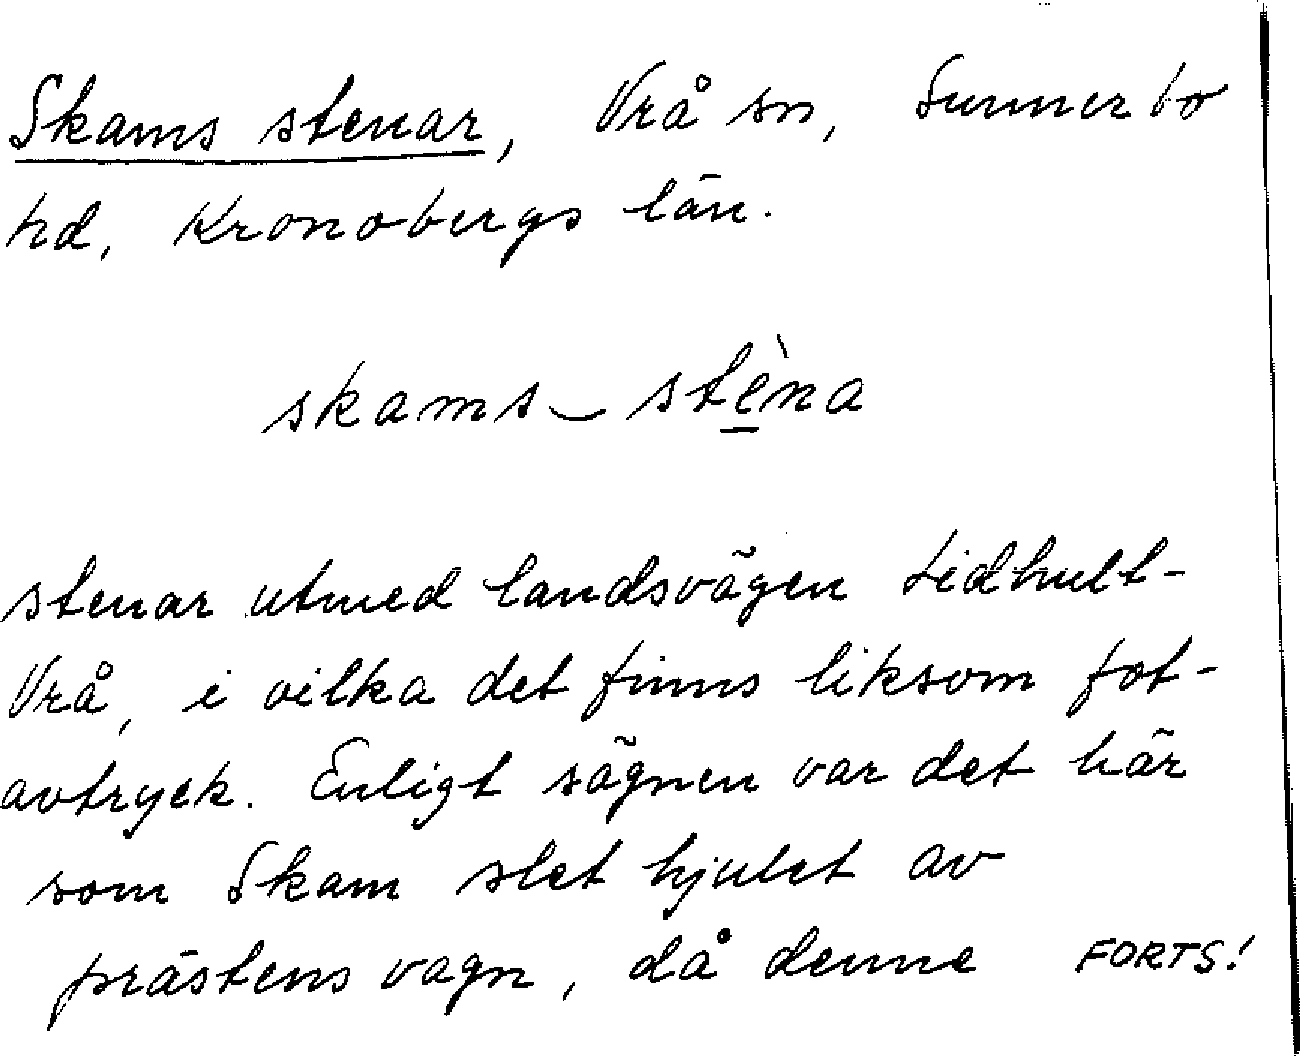 Skams stenar, Vrå sn, Sunnerbo
hd, Kronobergs län.
skams‿stèna
stenar utmed landsvägen Lidhult-
Vrå, i vilka det finns liksom fot-
avtryck. Enligt sägnen var det här
som Skam slet hjulet av
prästens vagn, då denne FORTS!